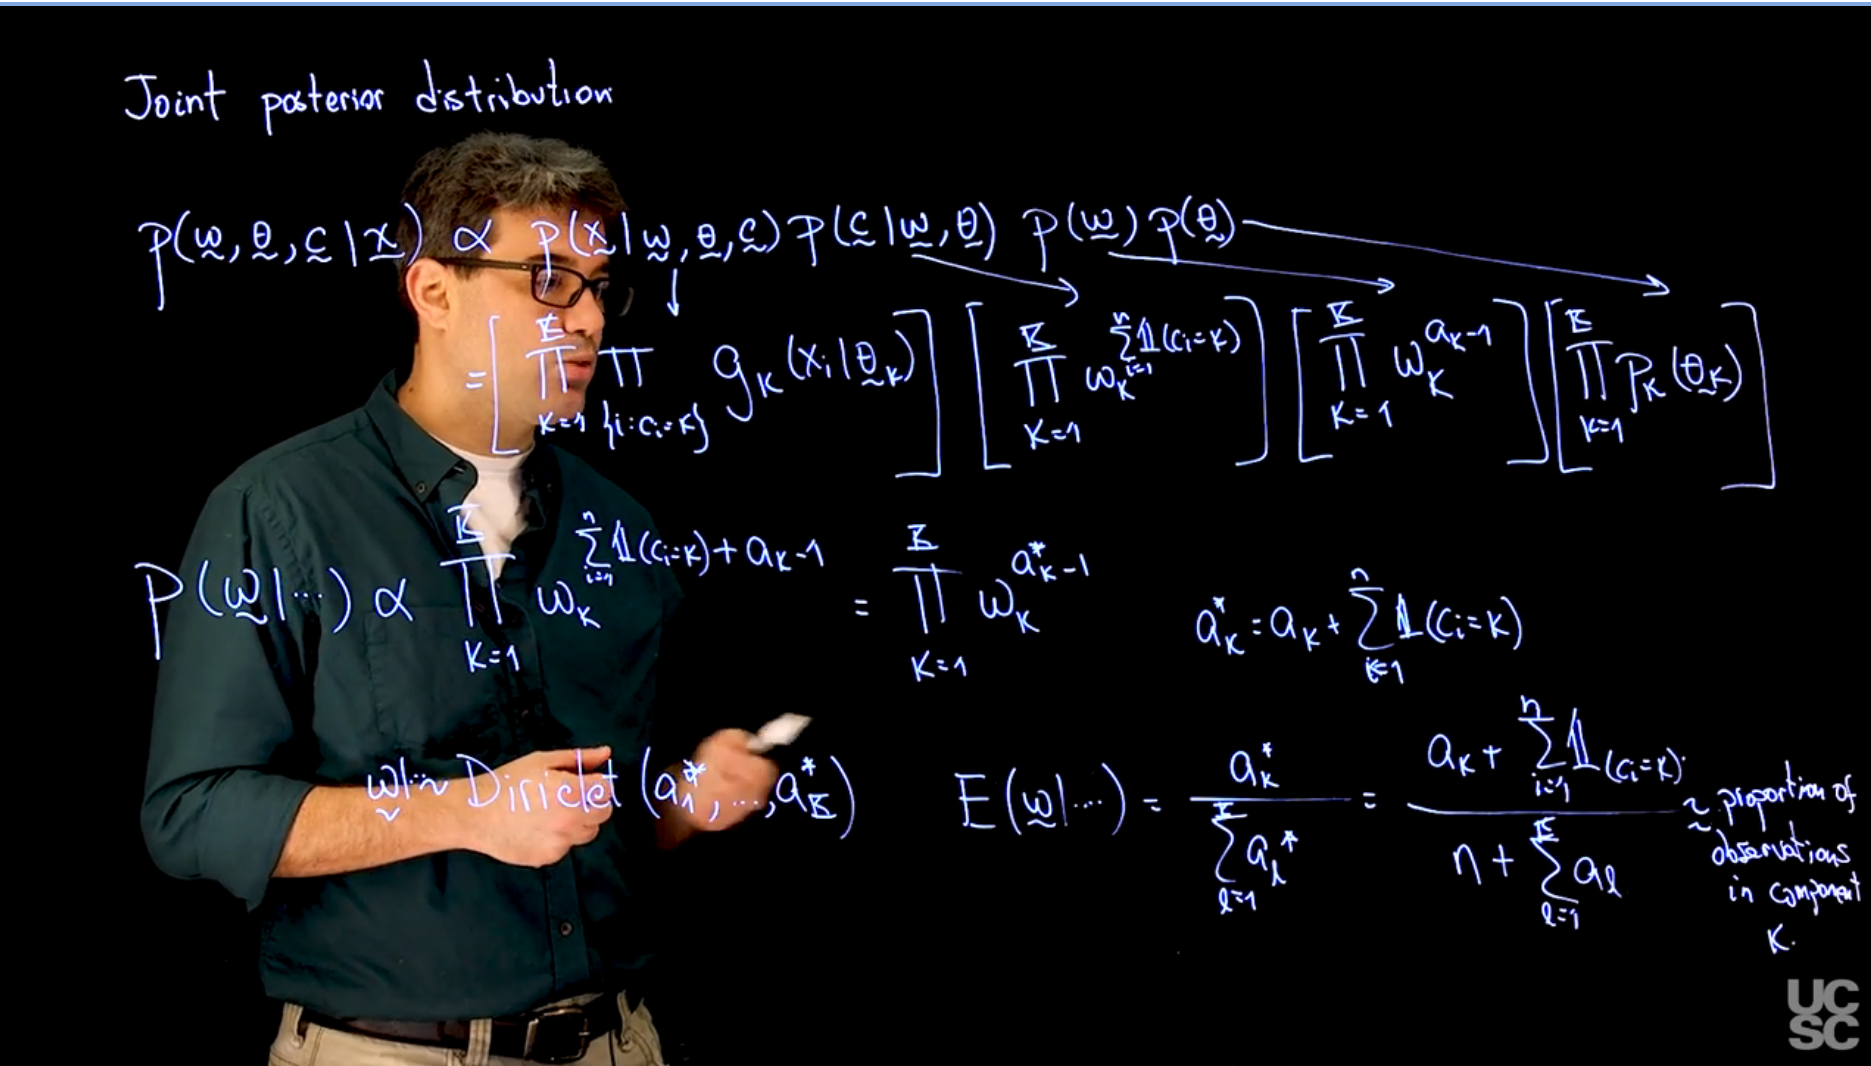 Joint posterior distribution
p(w, θ, c | x) ∝ p(x | w, θ, c) p(c | w, θ) p(w) p(θ)
= [∏_{k=1}^{K} ∏_{{i:ci=k}} g_k(x_i | θ_k)] [∏_{k=1}^{K} ω_k^{∑_{i=1}^{n} 𝟙(c_i=k)}] [∏_{k=1}^{K} ω_k^{a_k-1}] [∏_{k=1}^{K} p_k(θ_k)]
p(w | ...) ∝ ∏_{k=1}^{K} ω_k^{∑_{i=1}^{n} 𝟙(c_i=k) + a_k-1} = ∏_{k=1}^{K} ω_k^{a_k^*-1}
a_k^* = a_k + ∑_{i=1}^{n} 𝟙(c_i=k)
w|... ~ Diriclet (a_1^*, ..., a_K^*)
E(w | ...) = a_k^* / ∑_{l=1}^{K} a_l^* = (a_k + ∑_{i=1}^{n} 𝟙(c_i=k)) / (n + ∑_{l=1}^{K} a_l) ≈ proportion of
observations
in component
k.
UC
SC